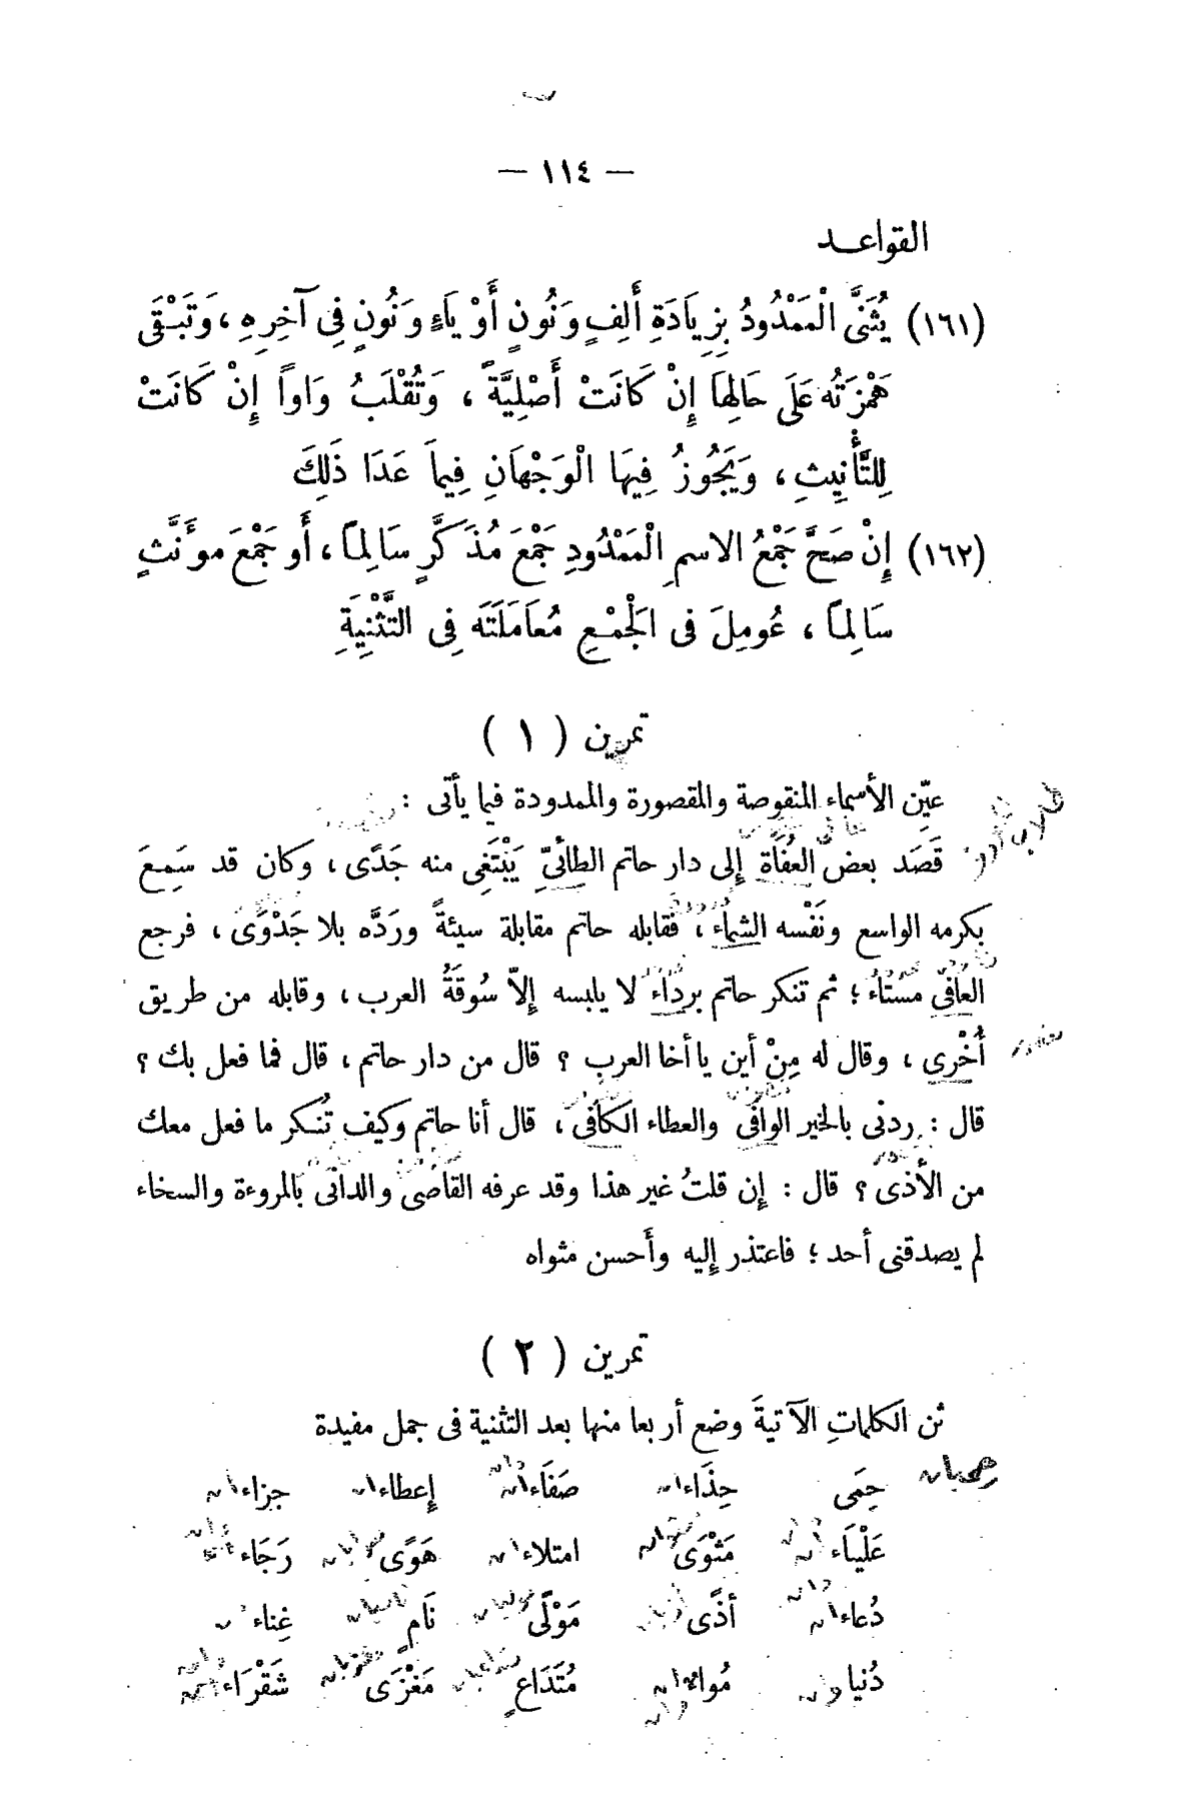 — ١١٤ —
القواعـــد
(١٦١) يُثَنَّى الْمَمْدُودُ بِزِيَادَةِ أَلِفٍ وَنُونٍ أَوْ يَاءٍ وَنُونٍ فِى آخِرِهِ ، وَتَبْقَى
هَمْزَتُهُ عَلَى حَالِهَا إِنْ كَانَتْ أَصْلِيَّةً ، وَتُقْلَبُ وَاواً إِنْ كَانَتْ
لِلتَّأْنِيثِ ، وَيَجُوزُ فِيهَا الْوَجْهَانِ فِيمَا عَدَا ذَلِكَ
(١٦٢) إِنْ صَحَّ جَمْعُ الاسمِ الْمَمْدُودِ جَمْعَ مُذَكَّرٍ سَالِماً ، أَو جَمْعَ موءَنَّثٍ
سَالِماً ، عُومِلَ فى الجَمْعِ مُعَامَلَتَه فِى التَّثْنِيَةِ
تمرين ( ١ )
عيّن الأسماء المنقوصة والمقصورة والممدودة فيما يأتى :
قَصَد بعضُ العُفَاة إلى دار حاتم الطائىِّ يَبْتَغِى منه جَدًى ، وكان قد سَمِعَ
بكرمه الواسع ونَفْسه الشماء ، فقابله حاتم مقابلة سيئةً وردَّه بلا جَدْوَى ، فرجع
العافى مُستاءً ؛ ثم تنكر حاتم برداء لا يلبسه إلاّ سُوقَةُ العرب ، وقابله من طريق
أُخْرى ، وقال له مِنْ أين يا أخا العرب ؟ قال من دار حاتم ، قال فما فعل بك ؟
قال : ردنى بالخير الوافى والعطاء الكافى ، قال أنا حاتم وكيف تُنكر ما فعل معك
من الأذى ؟ قال : إن قلتُ غير هذا وقد عرفه القاصى والدانى بالمروءة والسخاء
لم يصدقنى أحد ؛ فاعتذر إليه وأَحسن مثواه
تمرين ( ٢ )
ثن الكلماتِ الآتيةَ وضع أربعا منها بعد التثنية فى جمل مفيدة
حِمَى حِذَاء ان صَفَاء ان إعطاء ان جزاء ان حميان
عَلْيَاء مَثْوَى امتلاء ان هَوًى رَجَاء
دُعاء ان أذًى مَوْلًى نَامٍ غِناء
دُنيا مُواء ان مُتَدَاعٍ مَغْزَى شَقْرَاء